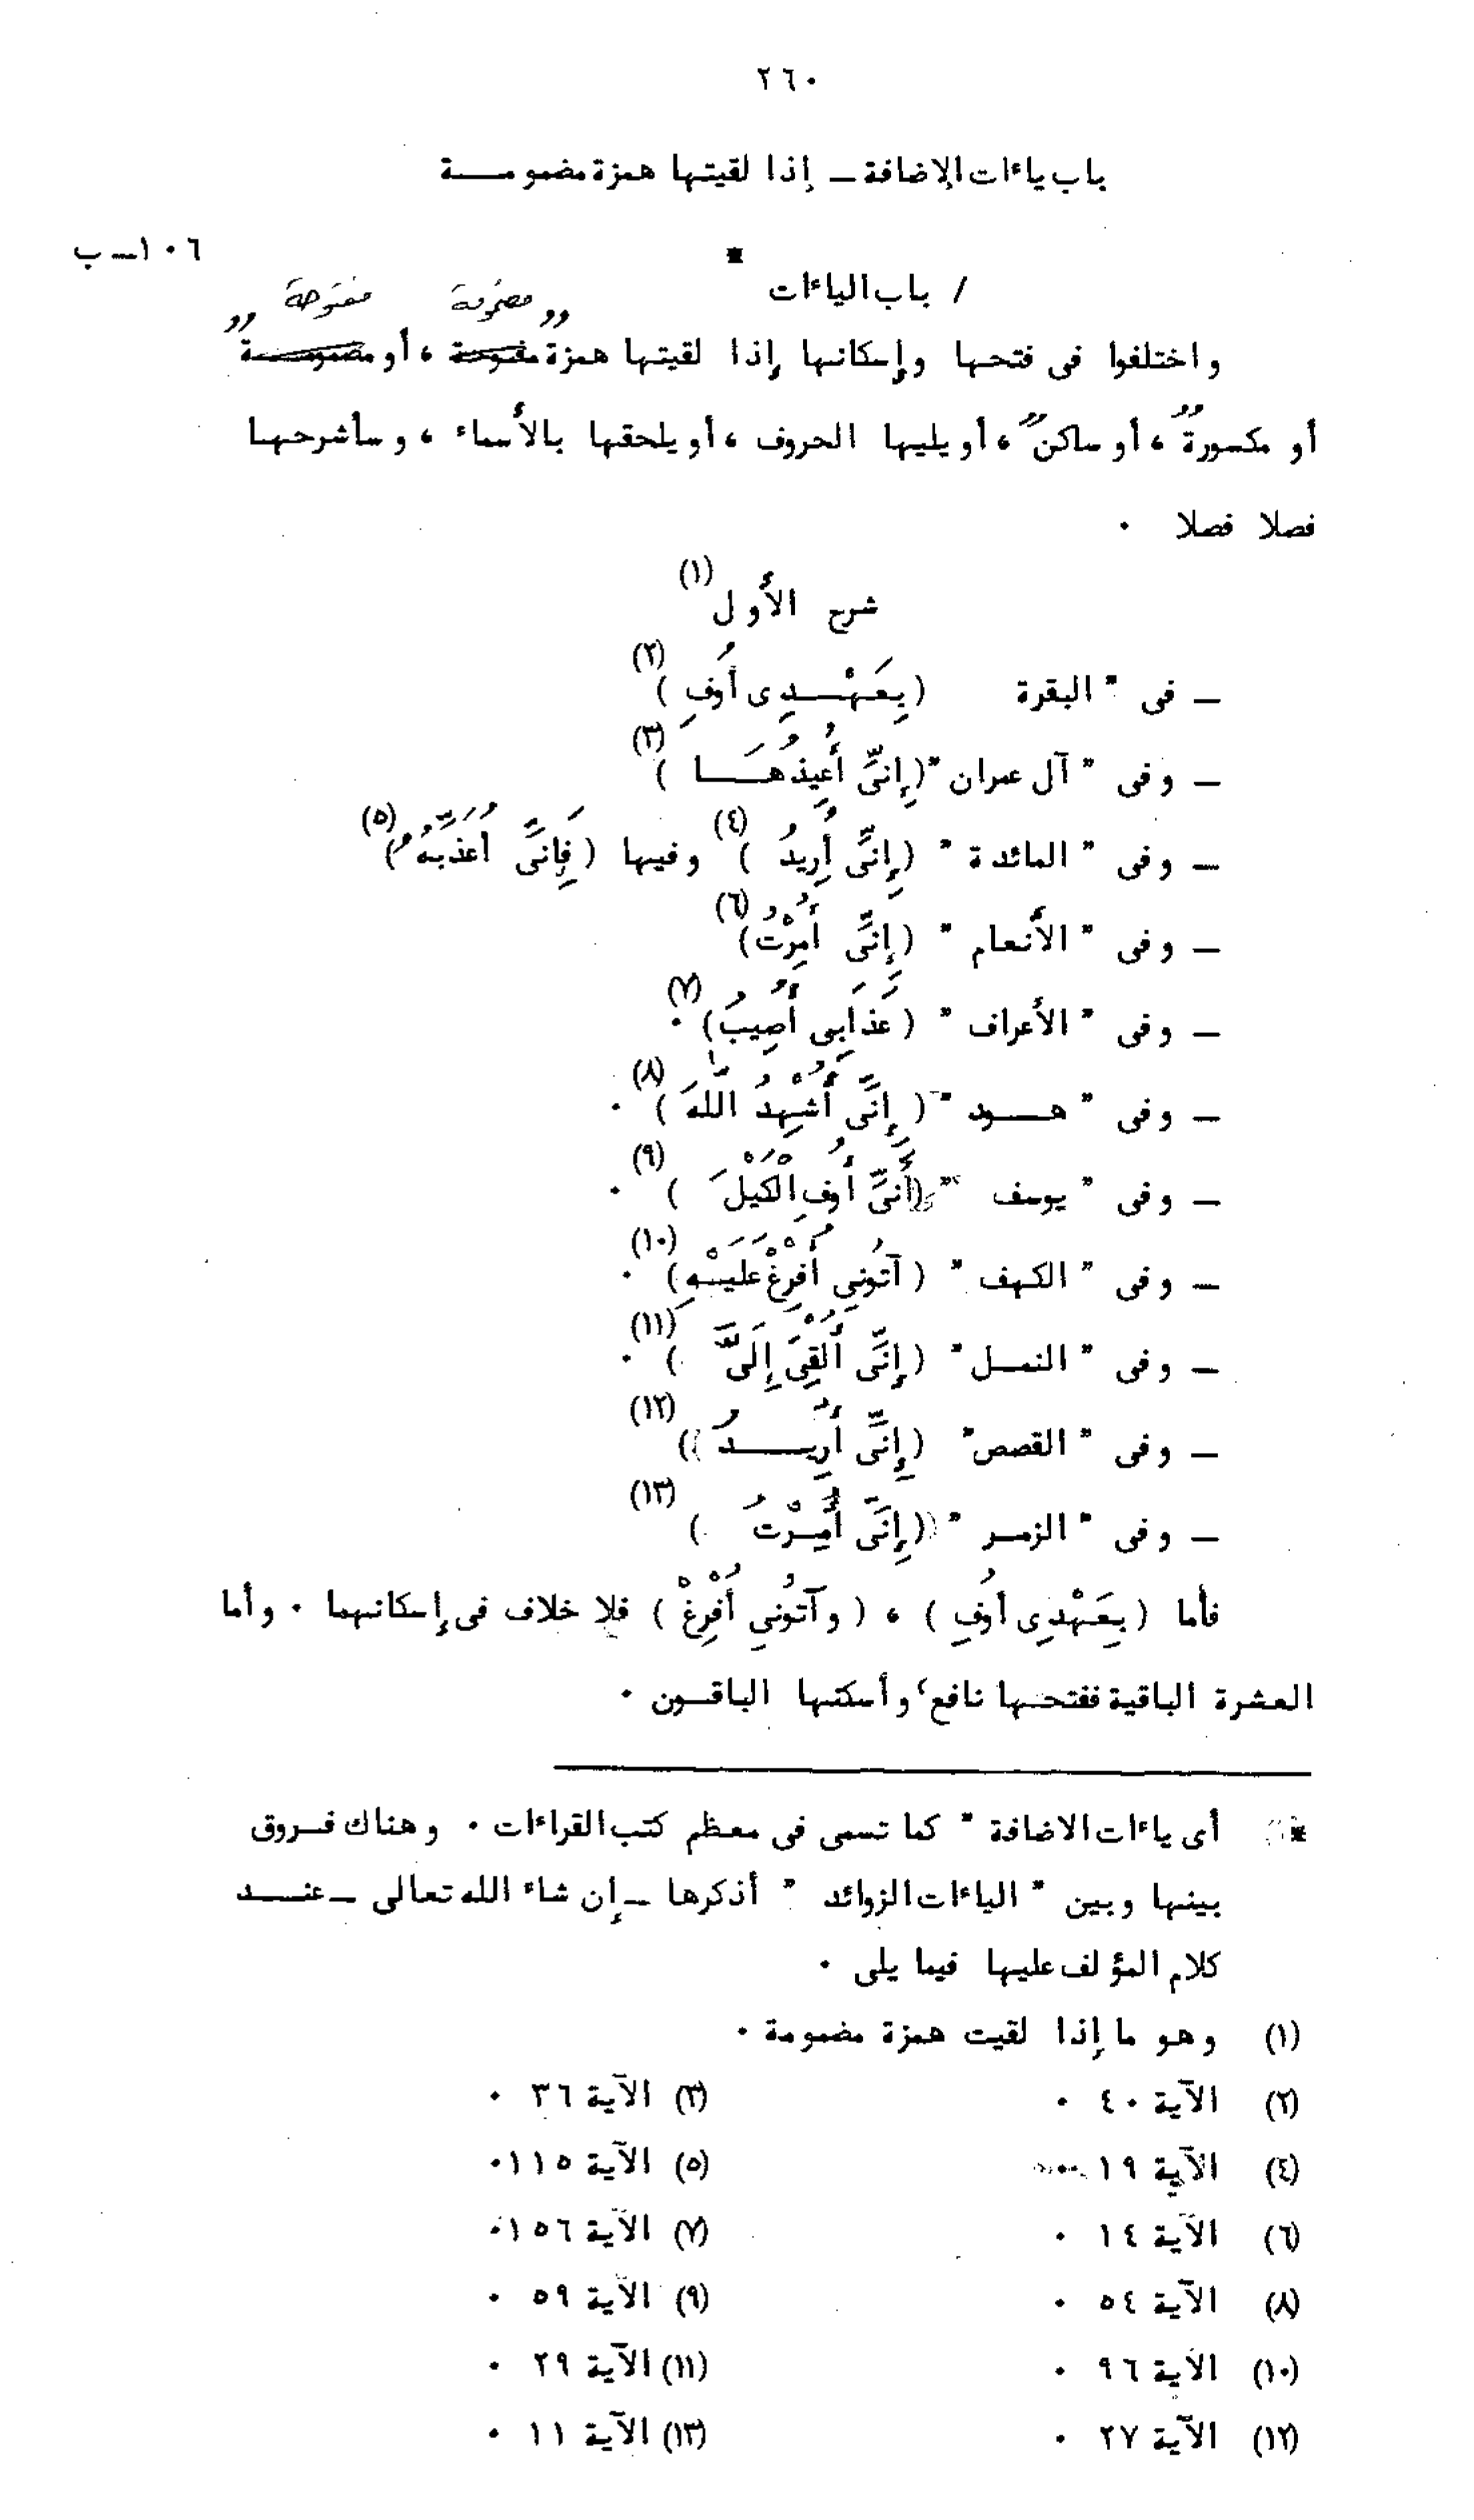 ٢٦٠
باب ياءات الإضافة ــ إذا لقيتها همزة مضمومــــة
١٠٦ــ ب
*
/ باب الياءات
,, مضمومة مفتوحة ,,
واختلفوا فى فتحها وإسكانها إذا لقيتها همزة مفتوحة ، أو مضمومــــة
أو مكسورة ، أو ساكن ، أو يليها الحروف ، أو يلحقها بالأسماء ، وسأشرحهـا
فصلا فصلا .
شرح الأول (١)
ــ فى " البقرة (بِعَهْــدِى أُوفِ ) (٢)
ــ وفى " آل عمران " (إِنىِّ أُعِيذُهَـــا ) (٣)
ــ وفى " المائدة " (إِنىِّ أُرِيدُ ) (٤) وفيها ( فَإِنىِّ أُعَذِّبُهُ ) (٥)
ــ وفى " الأنعام " (إِنىِّ أُمِرْتُ) (٦)
ــ وفى " الأعراف " ( عَذَابِى أُصِيبُ) (٧) .
ــ وفى " هــود " ( إِنىِّ أُشْهِدُ اللَّهَ ) (٨) .
ــ وفى " يوسف " (أَنىِّ أُوفِ الْكَيْلَ ) (٩) .
ــ وفى " الكهف " ( آتُونِى أُفْرِغْ عَلَيْــهِ) (١٠) .
ــ وفى " النمــل " (إِنىِّ أُلْقِىَ إِلَىَّ ) (١١) .
ــ وفى " القصص " (إِنىِّ أُرِيــــدُ ) (١٢)
ــ وفى " الزمــر " (إِنىِّ أُمِــرْتُ ) (١٣)
فأما (بِعَهْدِى أُوفِ ) ، ( وآتُونِى أُفْرِغْ ) فلا خلاف فى إسكانهما . وأما
العشرة الباقية ففتحــها نافع ، وأسكنها الباقــون .
* أى ياءات الاضافة " كما تسمى فى معظم كتب القراءات . وهناك فــروق
بينها وبين " الياءات الزوائد " أذكرها ــ إن شاء الله تعالى ــ عنــــد
كلام المؤلف عليها فيما يلى .
(١) وهو ما إذا لقيت همزة مضمومة .
(٢) الآية ٤٠ . (٣) الآية ٣٦ .
(٤) الآية ١٩ . (٥) الآية ١١٥ .
(٦) الآية ١٤ . (٧) الآية ١٥٦ .
(٨) الآية ٥٤ . (٩) الآية ٥٩ .
(١٠) الآية ٩٦ . (١١) الآية ٢٩ .
(١٢) الآية ٢٧ . (١٣) الآية ١١ .